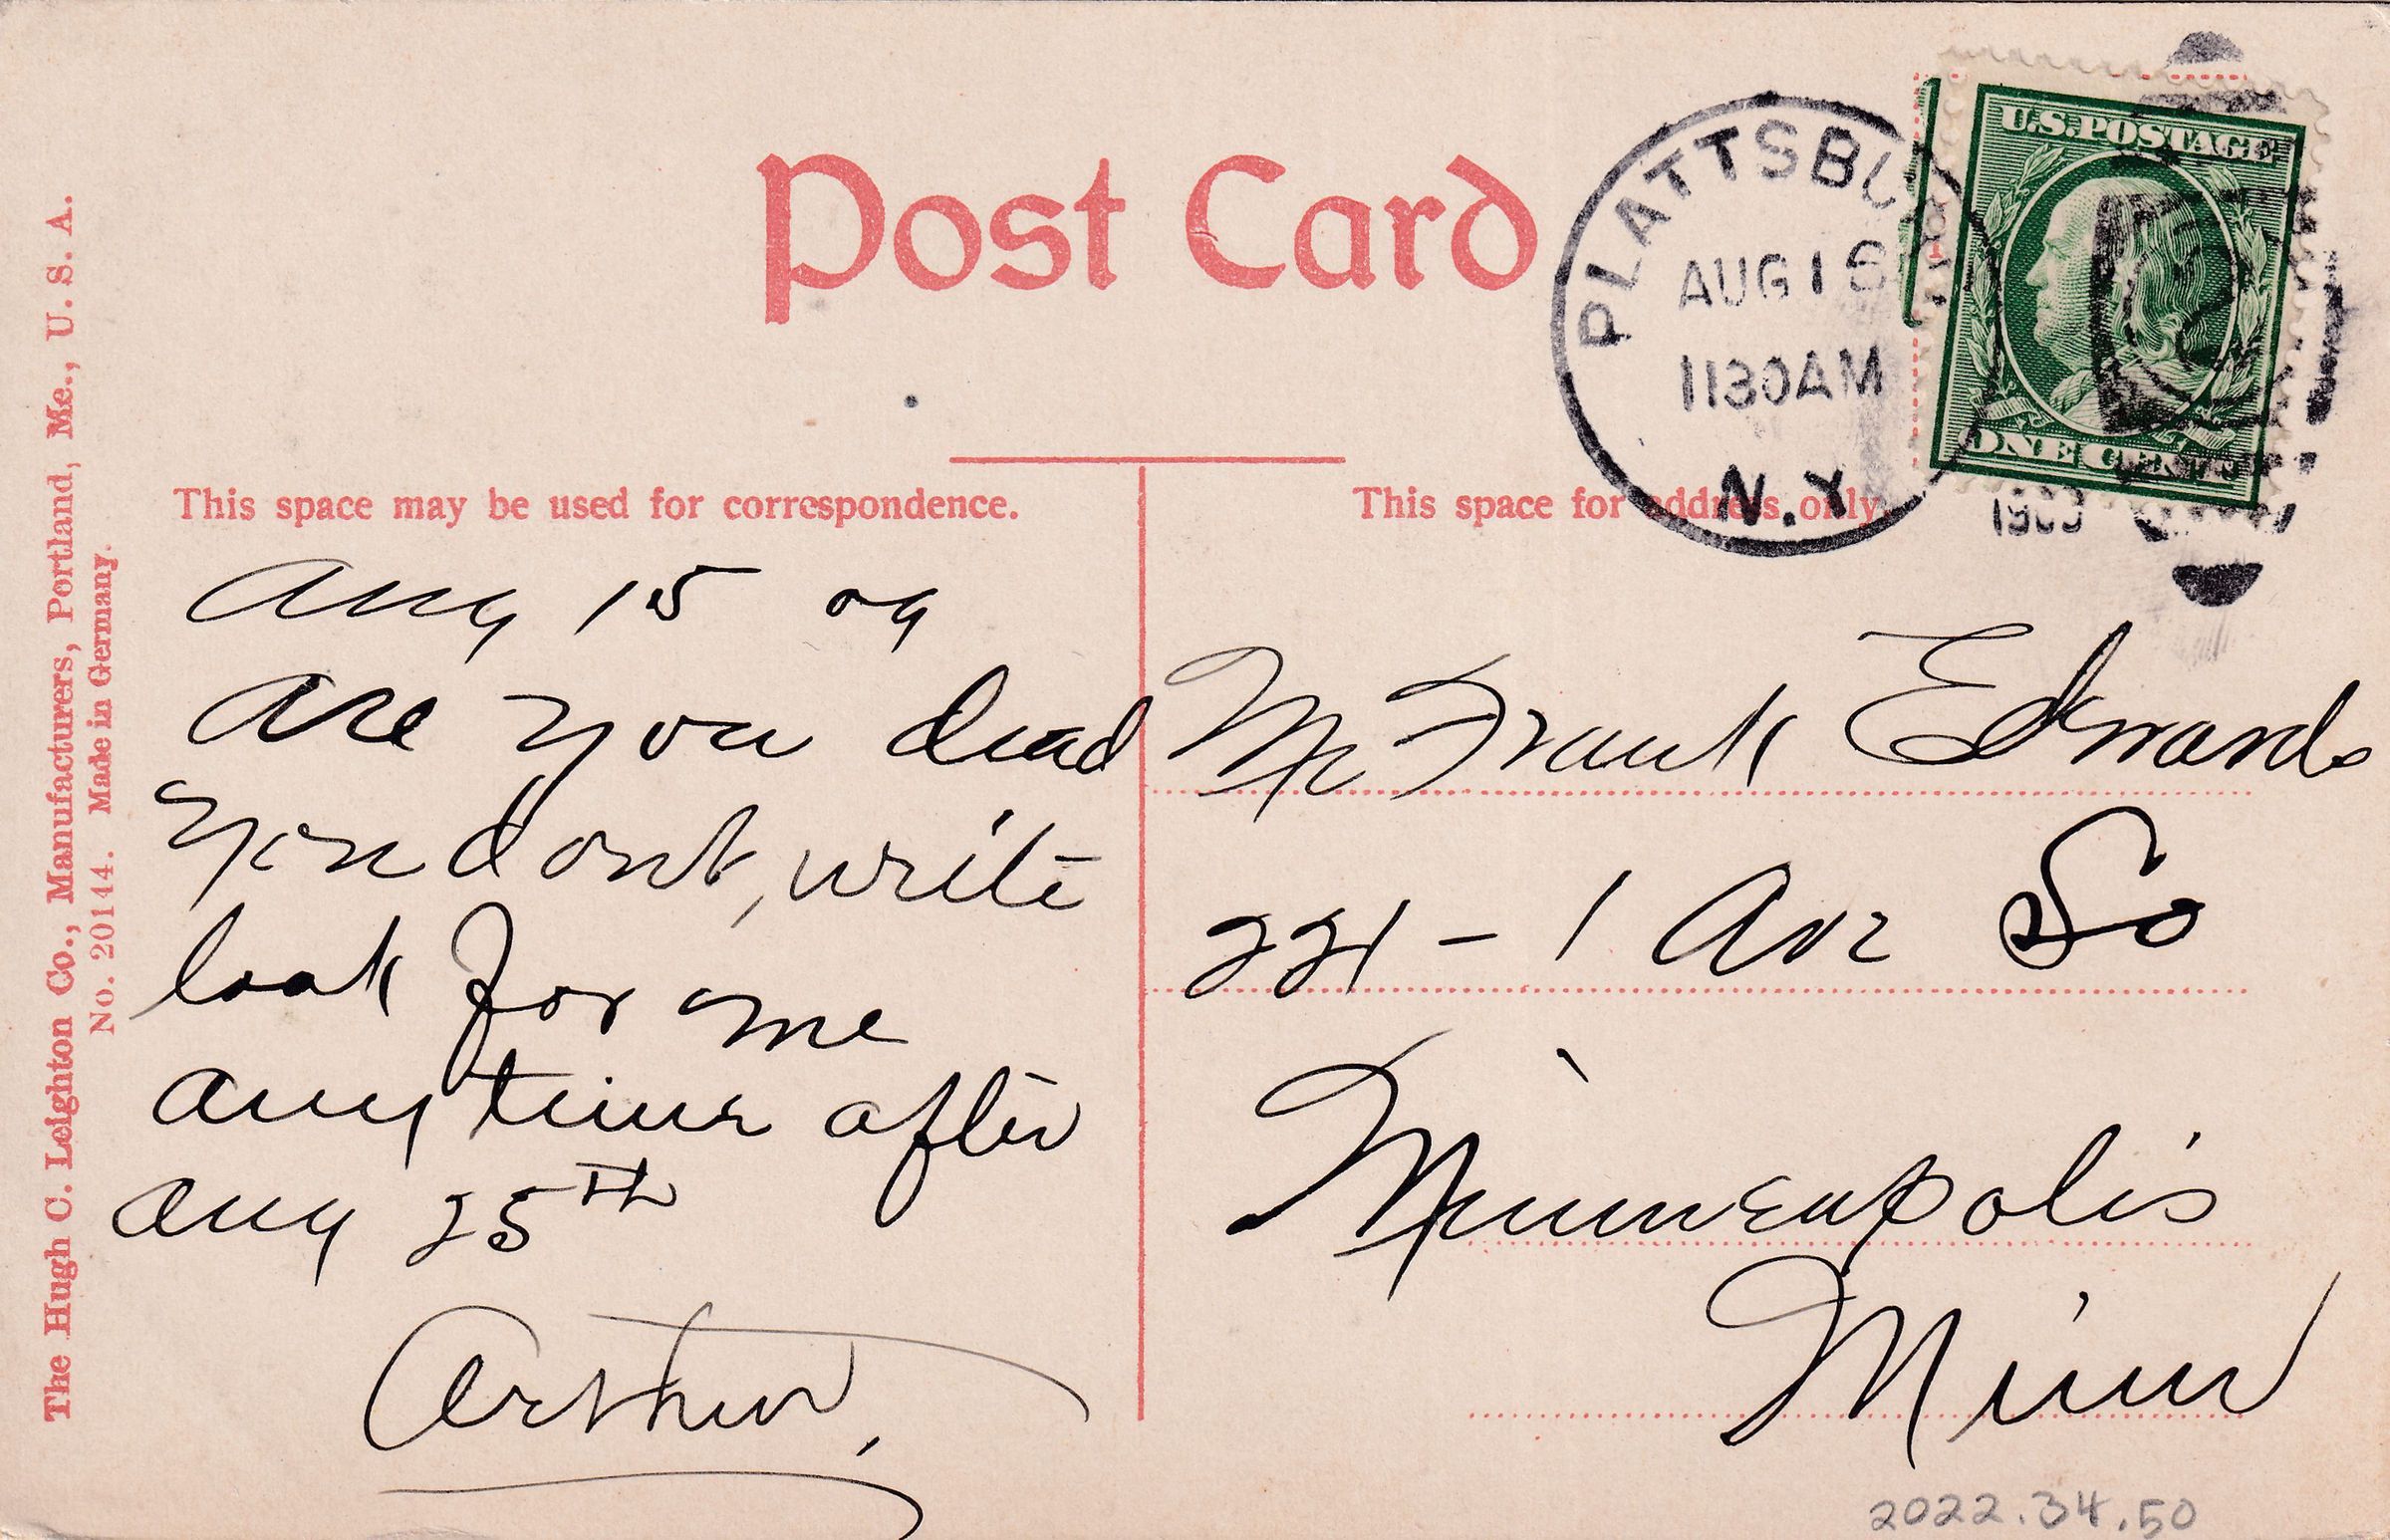 Post Card
PLATTSBU
AUG 16
1130AM
N.Y.
1909
U.S.POSTAGE
ONE CENT
This space may be used for correspondence.
This space for address only.
Aug 15 09
Are you dead
you dont, write
look for me
any time after
Aug 25TH
Arthur,
Mr Frank Edwards
221 - 1 Ave So
Minneapolis
Minn
The Hugh C. Leighton Co., Manufacturers, Portland, Me., U. S. A.
No. 20144. Made in Germany.
2022.34.50